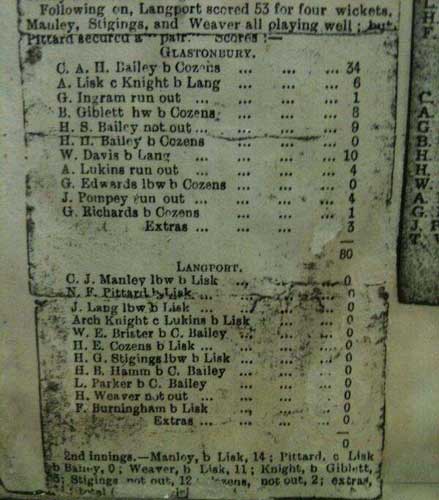 Following on, Langport scored 53 for four wickets,
Manley, Stigings, and Weaver all playing well; but
Pittard secured a "pair." Scores :—
GLASTONBURY.
C. A. H. Bailey b Cozens ... ... ... 34
A. Lisk c Knight b Lang ... ... ... 6
G. Ingram run out ... ... ... ... 1
B. Giblett hw b Cozens ... ... ... 8
H. S. Bailey not out ... ... ... ... 9
H. H. Bailey b Cozens ... ... ... 0
W. Davis b Lang ... ... ... ... 10
A. Lukins run out ... ... ... ... 4
G. Edwards lbw b Cozens ... ... ... 0
J. Pompey run out ... ... ... ... 4
G. Richards b Cozens ... ... ... 1
Extras ... ... ... 3
80
LANGPORT.
C. J. Manley lbw b Lisk ... ... ... 0
N. F. Pittard b Lisk ... ... ... 0
J. Lang lbw b Lisk ... ... ... 0
Arch Knight c Lukins b Lisk ... ... 0
W. E. Brister b C. Bailey ... ... ... 0
H. E. Cozens b Lisk ... ... ... ... 0
H. G. Stigings lbw b Lisk ... ... ... 0
H. B. Hamm b C. Bailey ... ... ... 0
L. Parker b C. Bailey ... ... ... 0
H. Weaver not out ... ... ... ... 0
F. Burningham b Lisk ... ... ... 0
Extras ... ... ... 0
0
2nd innings.—Manley, b Lisk, 14; Pittard, c Lisk
b Bailey, 0; Weaver, b Lisk, 11; Knight, b Giblett,
Stigings not out, 12; Cozens, not out, 2; extras,
total